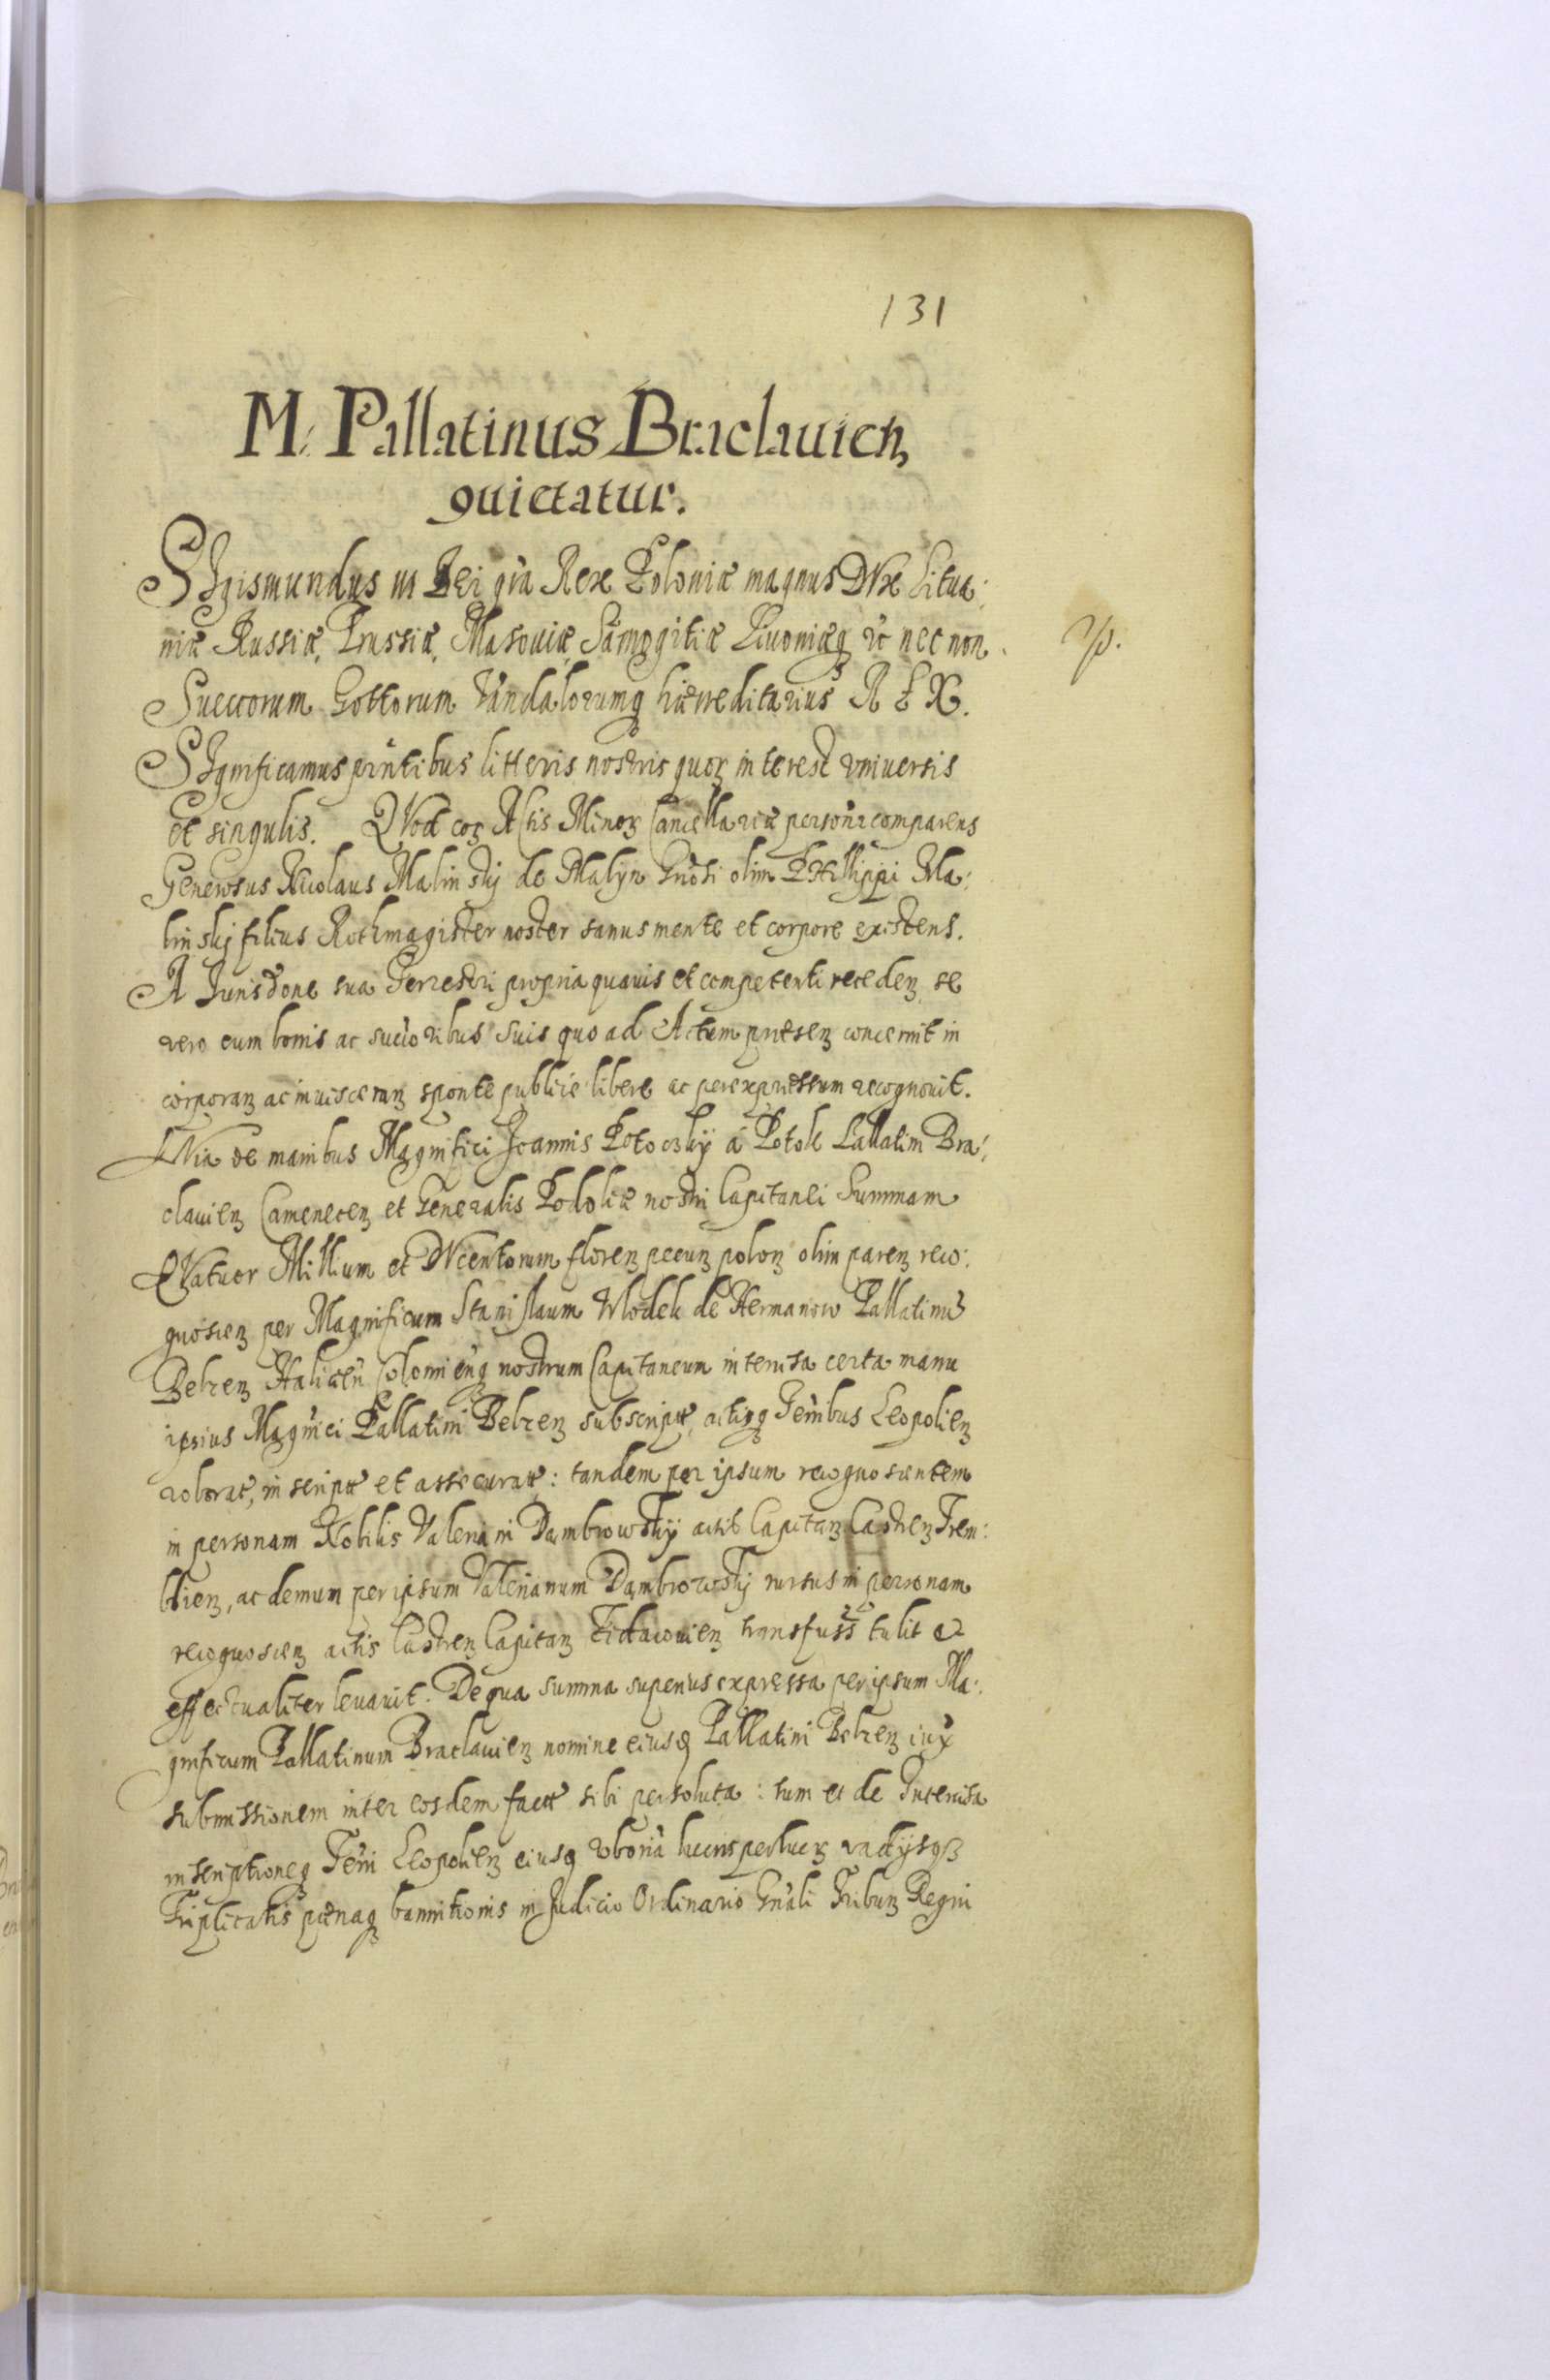 131
M. Pallatinus Braclauien
quietatur.
SIgismundus III Dei gra Rex Poloniæ magnus DVx Litua:
niæ Russiæ, Prussiæ, Masouiæ Samogitiæ Liuoniæq ꝛc nec non
Sueccorum Gottorum Vandalorumq hærreditarius REX.
SIgnificamus pntibus litteris nostris quoꝝ interest vniuersis
et singulis. QVod coꝝ Actis Minoꝝ Cancellariæ personr comparens
Generosus Nicolaus Malinskij de Malyn Gnosi olim PHillippi Ma:
linskij filius Rothmagister noster sanus mente et corpore existens.
A Jurisdone sua Terrestri propria quauis et competenti receden se
vero cum bonis ac succoribus suis quo ad Actum præsen concernit in
corporan ac inuisceran sponte publice libere ac per expressum recognouit.
QVia de manibus Magnifici Joannis Potoczkÿ á Potok Pallatini Bra:
clauien Camenecen et Generalis Podoliæ nostri Capitanei Summam
QVatuor Millium et DVcentorum floren pecun polon olim paren reco:
gnoscen per Magnificum Stanislaum Wlodek de Hermanow Pallatinū
Belzen Halicien Colomienq nostrum Capitaneum intercisa certa manu
ipsius Magnici Pallatini Belzen subscriptæ, actisq Tenibus Leopolien
roborat, inscriptæ et assecuratæ: tandem per ipsum recognoscentem
in personam Nobilis Valeriani Dambrowskÿ actis Capitan Castren Trem:
blien, ac demum per ipsum Valerianum Dambrowskij rursus in personam
recognoscen actis Castren Capitan transfuss tulit et
effectualiter leuauit. De qua summa superius expressa per ipsum Ma:
gnificum Pallatinum Braclauien nomine eiusd Pallatini Belzen iux
submissionem inter eosdem factæ sibi persoluta: tum et de Intercisa
inscriptioneq Teni Leopolien eiusq roboria lucrisperlucr vadijsqꝫ
Triplicatis pœnaq bannitionis in Judicio Ordinario Gnali Tribun Regni